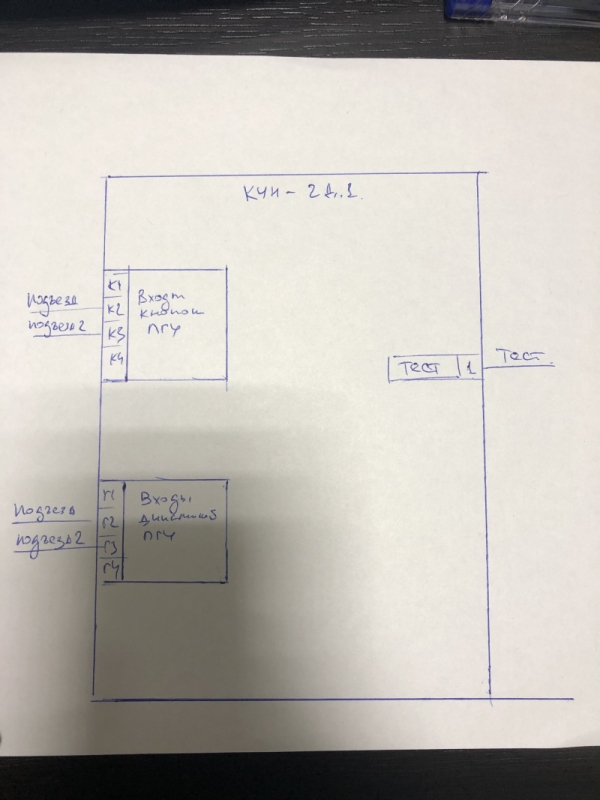 КЧН-2Д.1.
Подъезд
подъезд2
К1
К2
К3
К4
Входы
кнопок
ПГУ
Тест
1
Тест.
Подъезд
подъезд2
Г1
Г2
Г3
Г4
Входы
динамиков
ПГУ